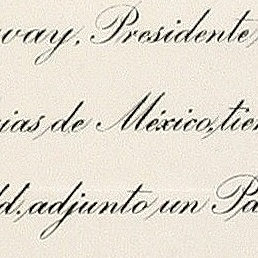 way, Presidente
ias, de México, tien
d. adjunto un Pa